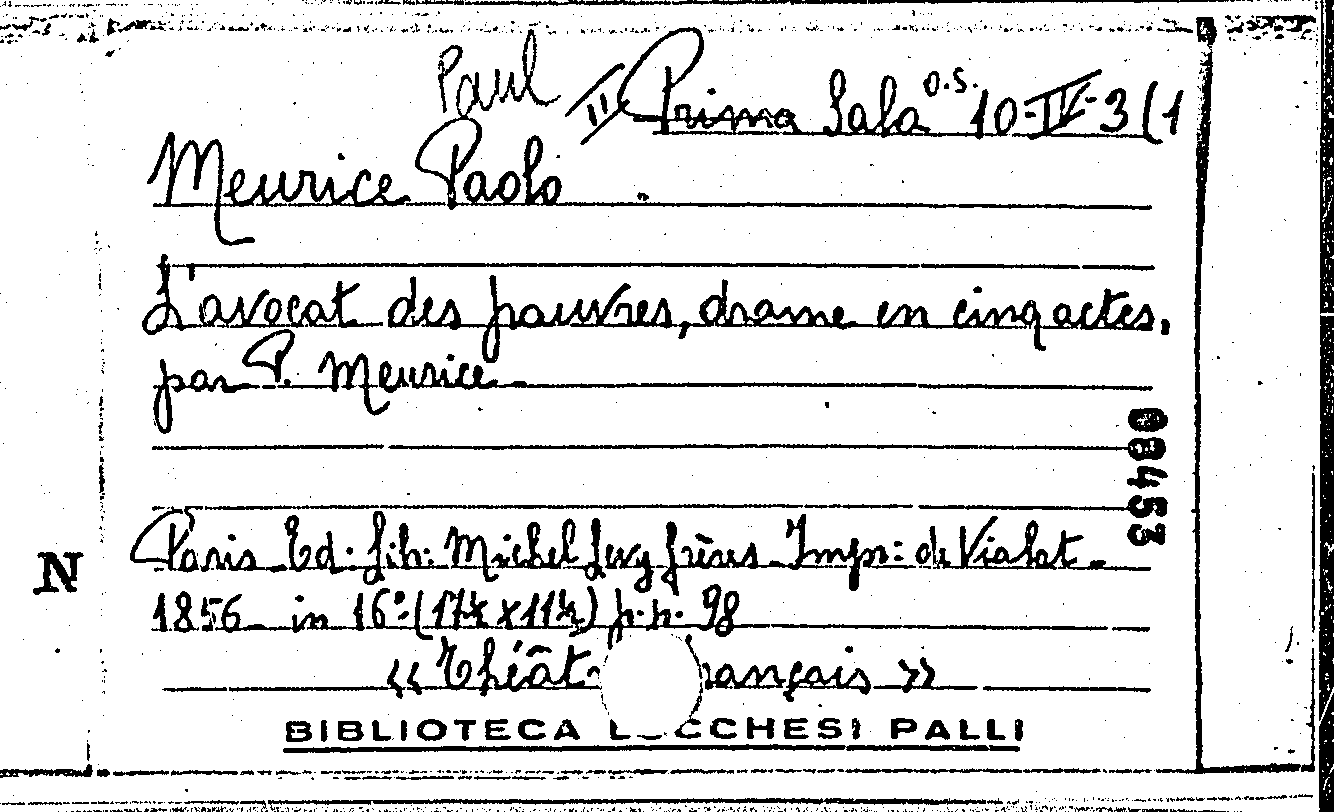 Paul
II Prima Sala O.S. 10-IV-3(1
Meurice Paolo
L'avocat des pauvres, drame en cinq actes,
par P. Meurice
08453
Paris Ed. Lib. Michel Levy frères Impr: de Vialat
N
1856 in 16º (17½ x 11½) p.p. 98
« Théât rançais »
BIBLIOTECA L CCHESI PALLI